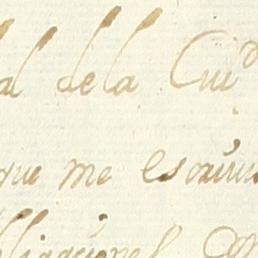 al de la Ciu^d
que me escriui
bligaciones